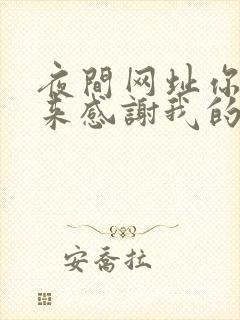 夜間网址你
来感謝我的
安喬拉